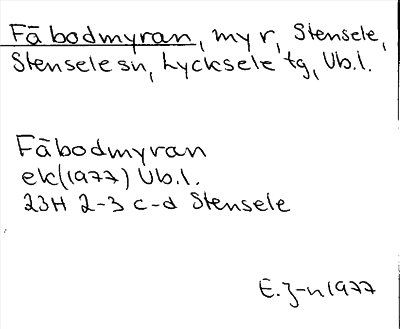 Fäbodmyran, myr, Stensele,
Stensele sn, Lycksele tg, Vb.l.
Fäbodmyran
ek(1977) Vb.l.
23H 2-3 c-d Stensele
E.J-n 1977